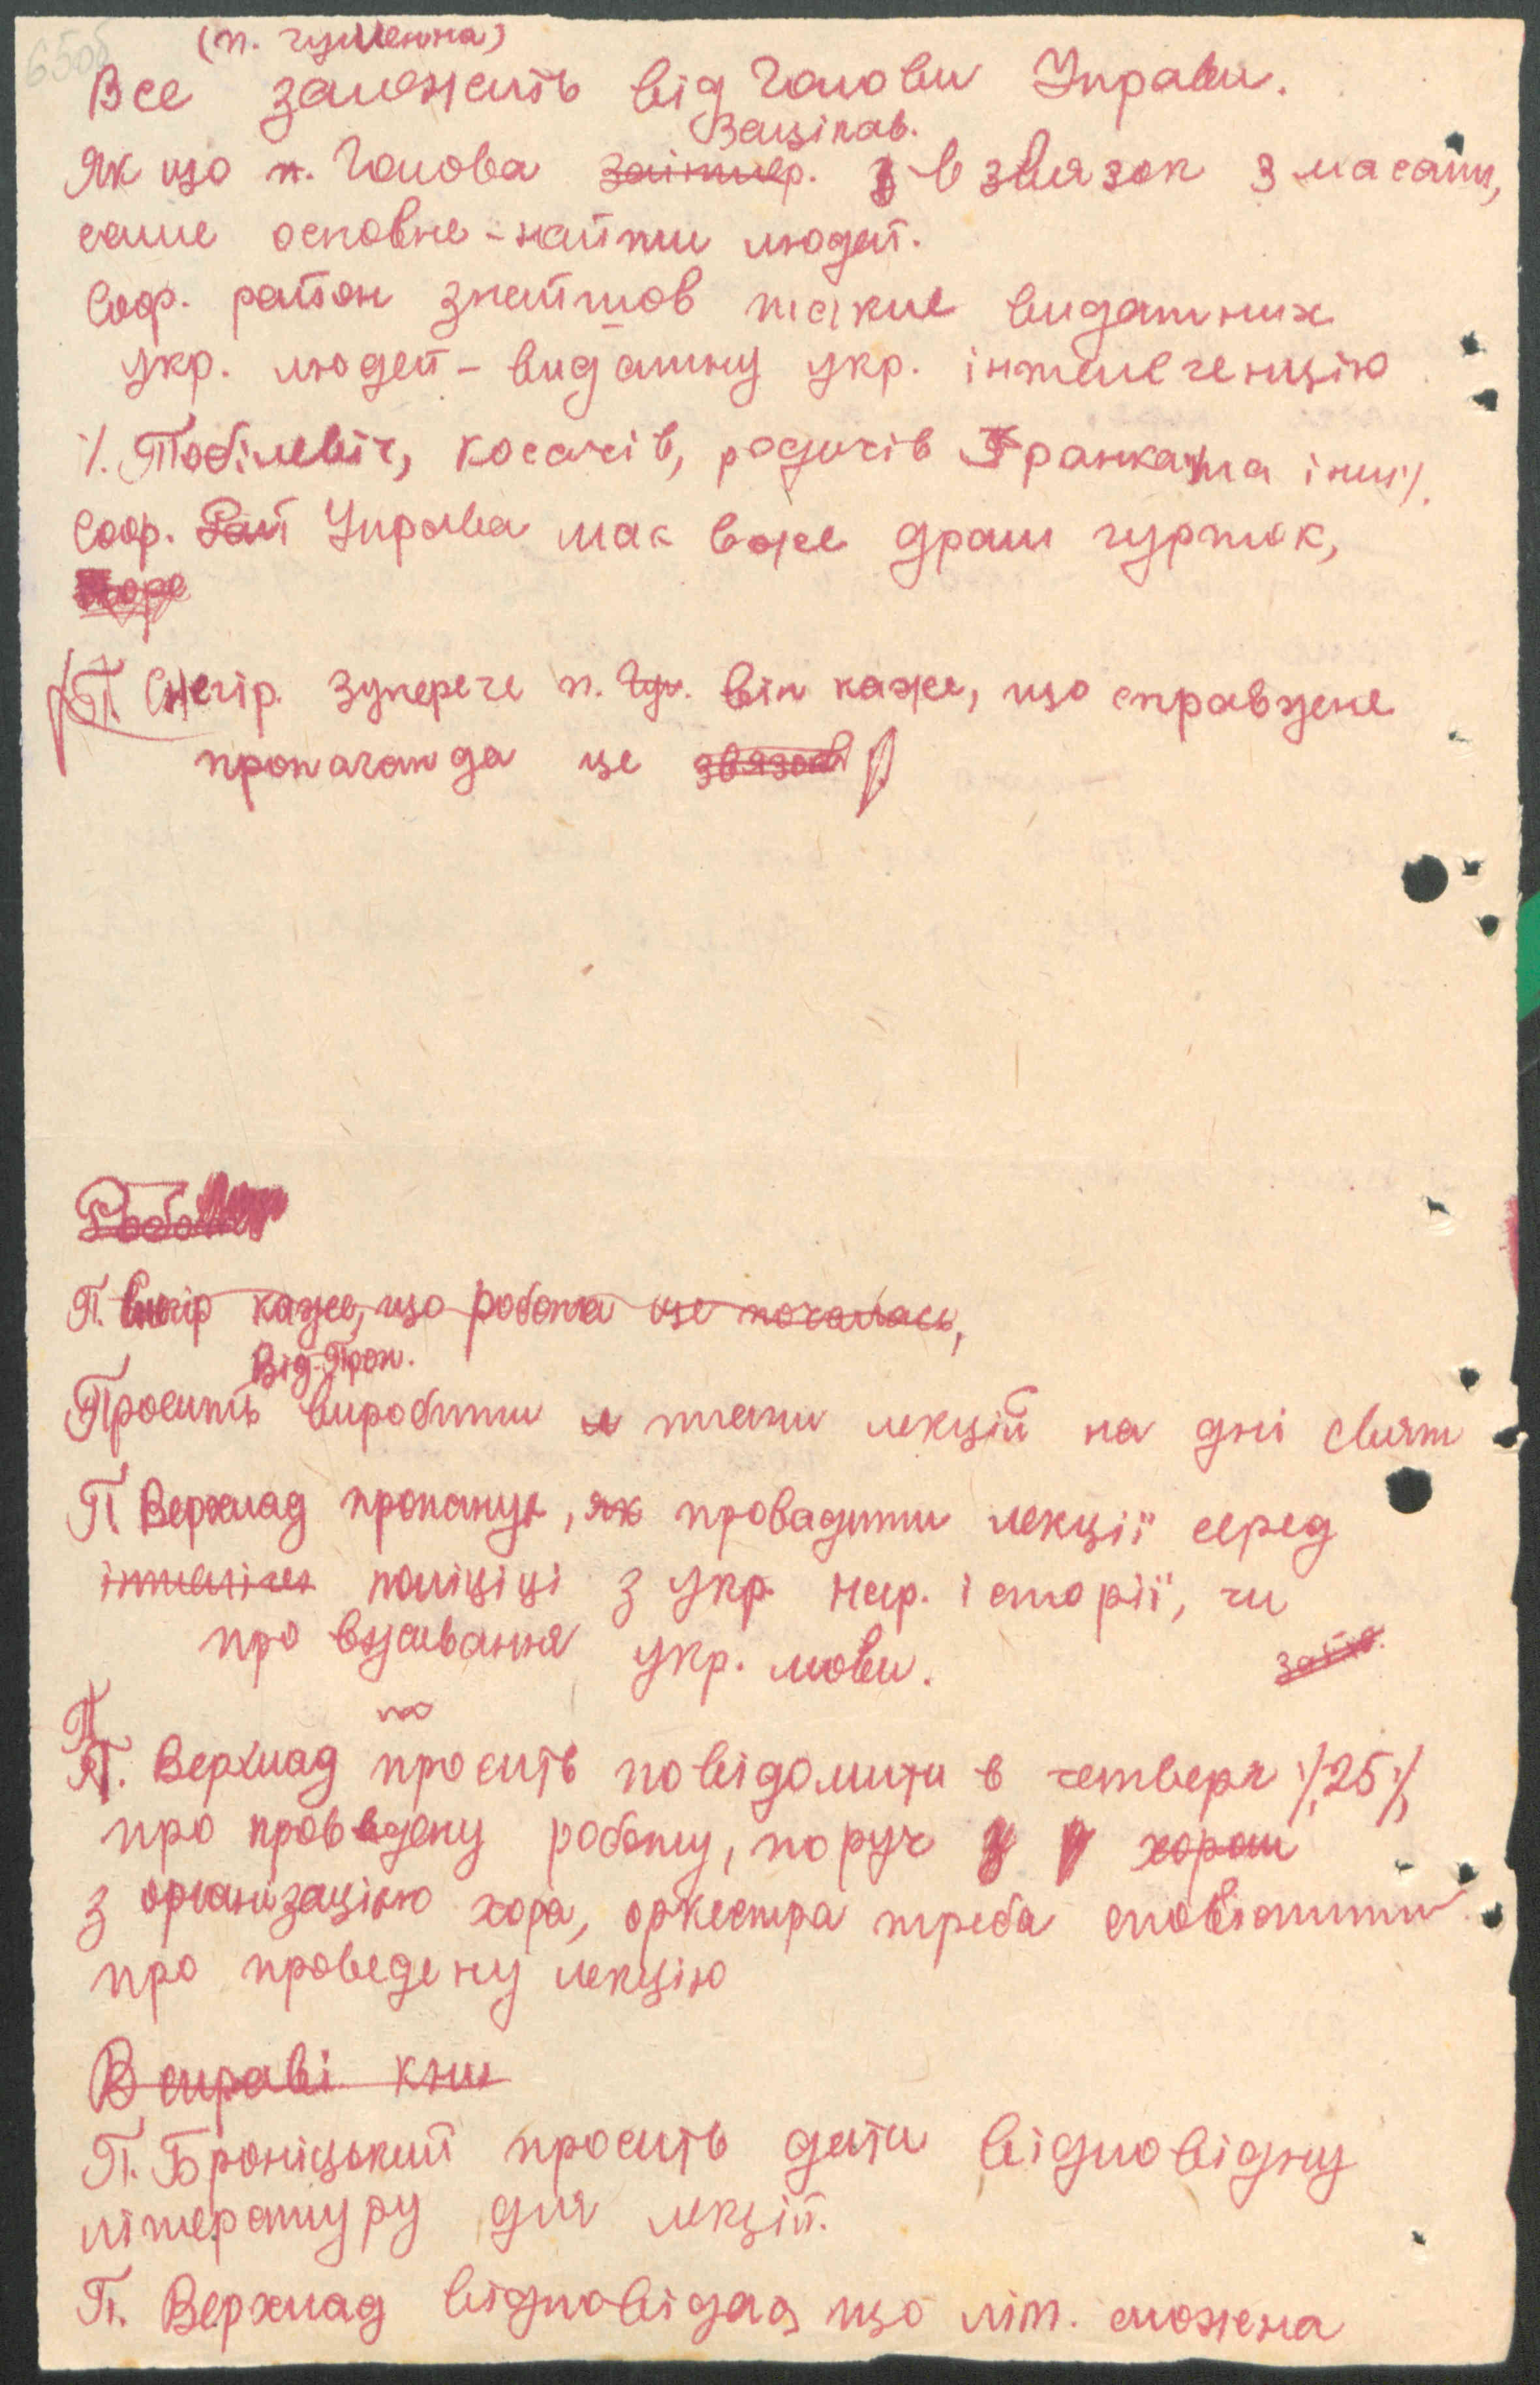 65об
(п. гуменна)
Все залежить від Голови Управи.
Зацікав.
Як що п. Голова заінтер. в звязок з масами,
саме основне - найти людей.
Соф. район знайшов таких видатних
укр. людей - видатну укр. інтелегенцію
/. Тобілевіч, косачів, родичів Франка та інш/.
Соф. Рай Управа має вже драм гурток,
Хоре
П. Снегір. зуперече п. Гум. він каже, що справжне
пропаганда це звязок
Робота
П. Снегір каже, що робота ще почалась,
Від. Проп.
Просить виробити плани лекцій на дні свят
П. Верхлад пропанує, як провадити лекції серед
інтеліген поліціі з укр. нар. історії, чи
про вживання укр. мови.
П. Верхлад просить повідомити в четверг /25/,
про проведену роботу, поруч хором
з організацією хора, оркестра треба сповістити
про проведену лекцію
В справі кни
П. Броніцький просить дати відповідну
літературу для лекцій.
П. Верхлад відповідає, що літ. можна